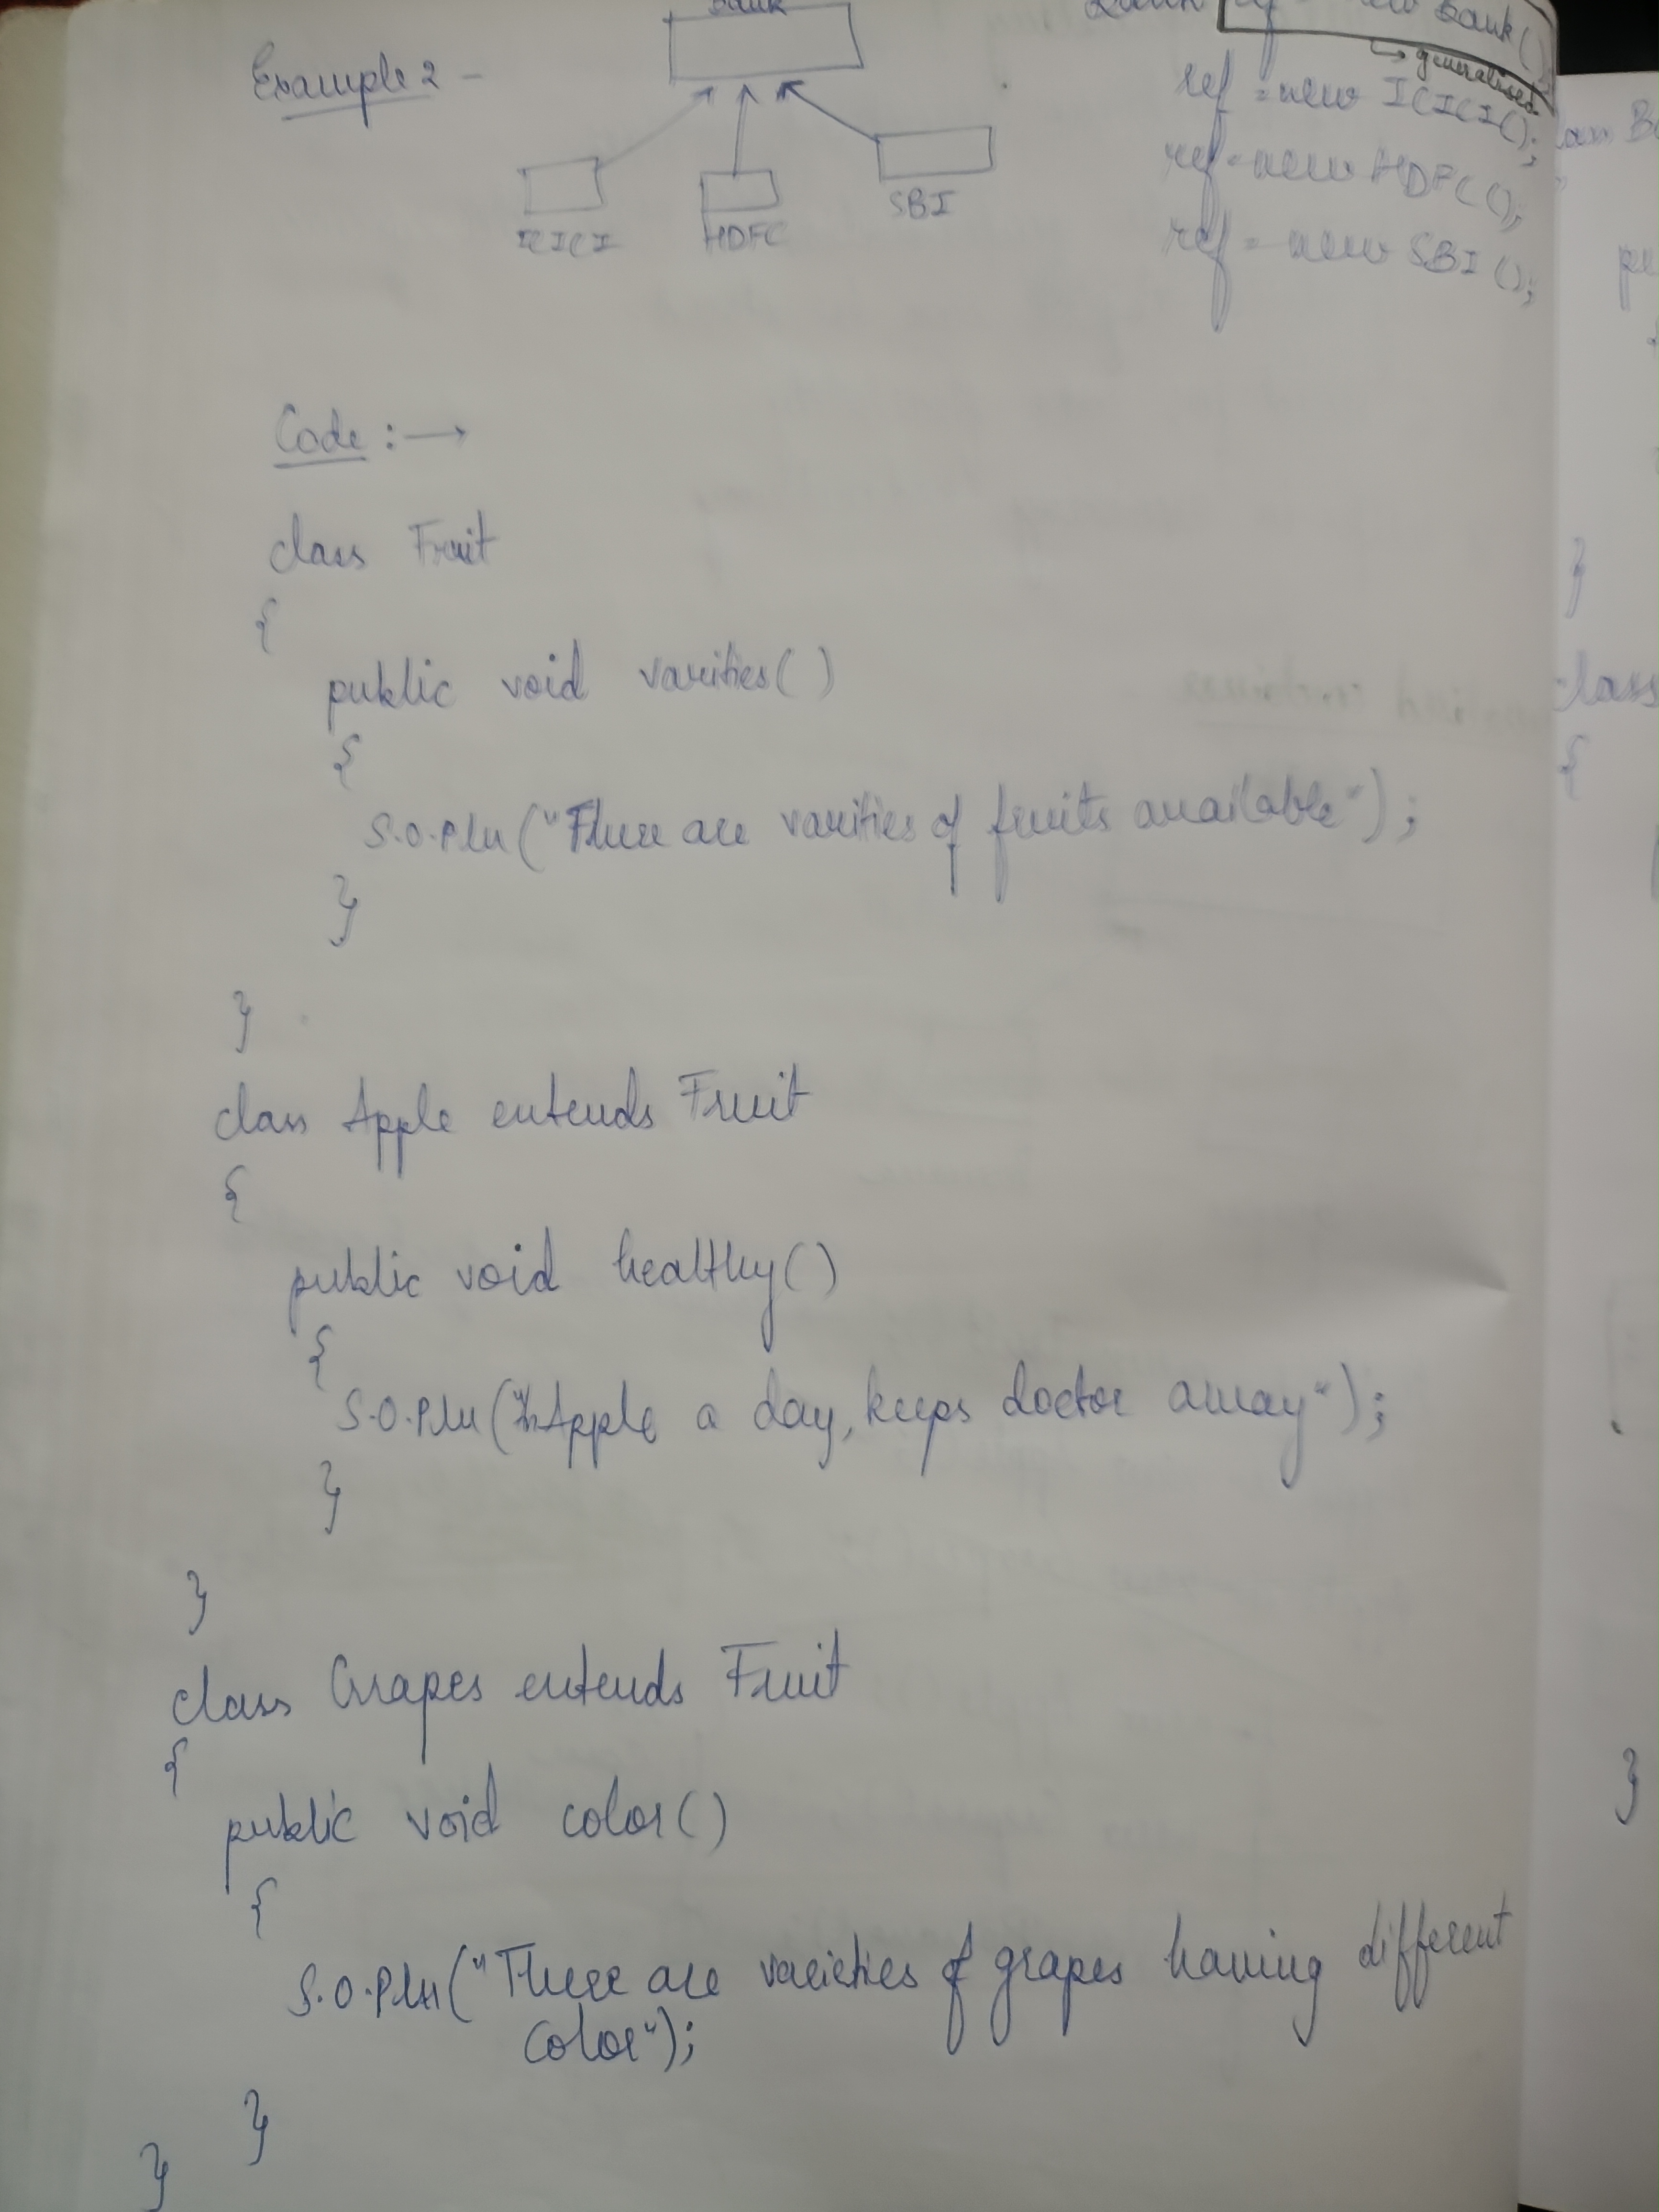 Bank
new Bank()
Example 2 -
→ generalised
ref = new ICICI();
ref = new HDFC();
ref = new SBI();
ICICI
HDFC
SBI
Code :→
class Fruit
{
public void varities()
{
S.O.Pln("There are varities of fruits available");
}
}
class Apple extends Fruit
{
public void healthy()
{
S.O.Pln("An Apple a day, keeps doctor away");
}
}
class Grapes extends Fruit
{
public void color()
{
S.O.Pln("There are varieties of grapes having different
color");
}
}
}
class
{
}